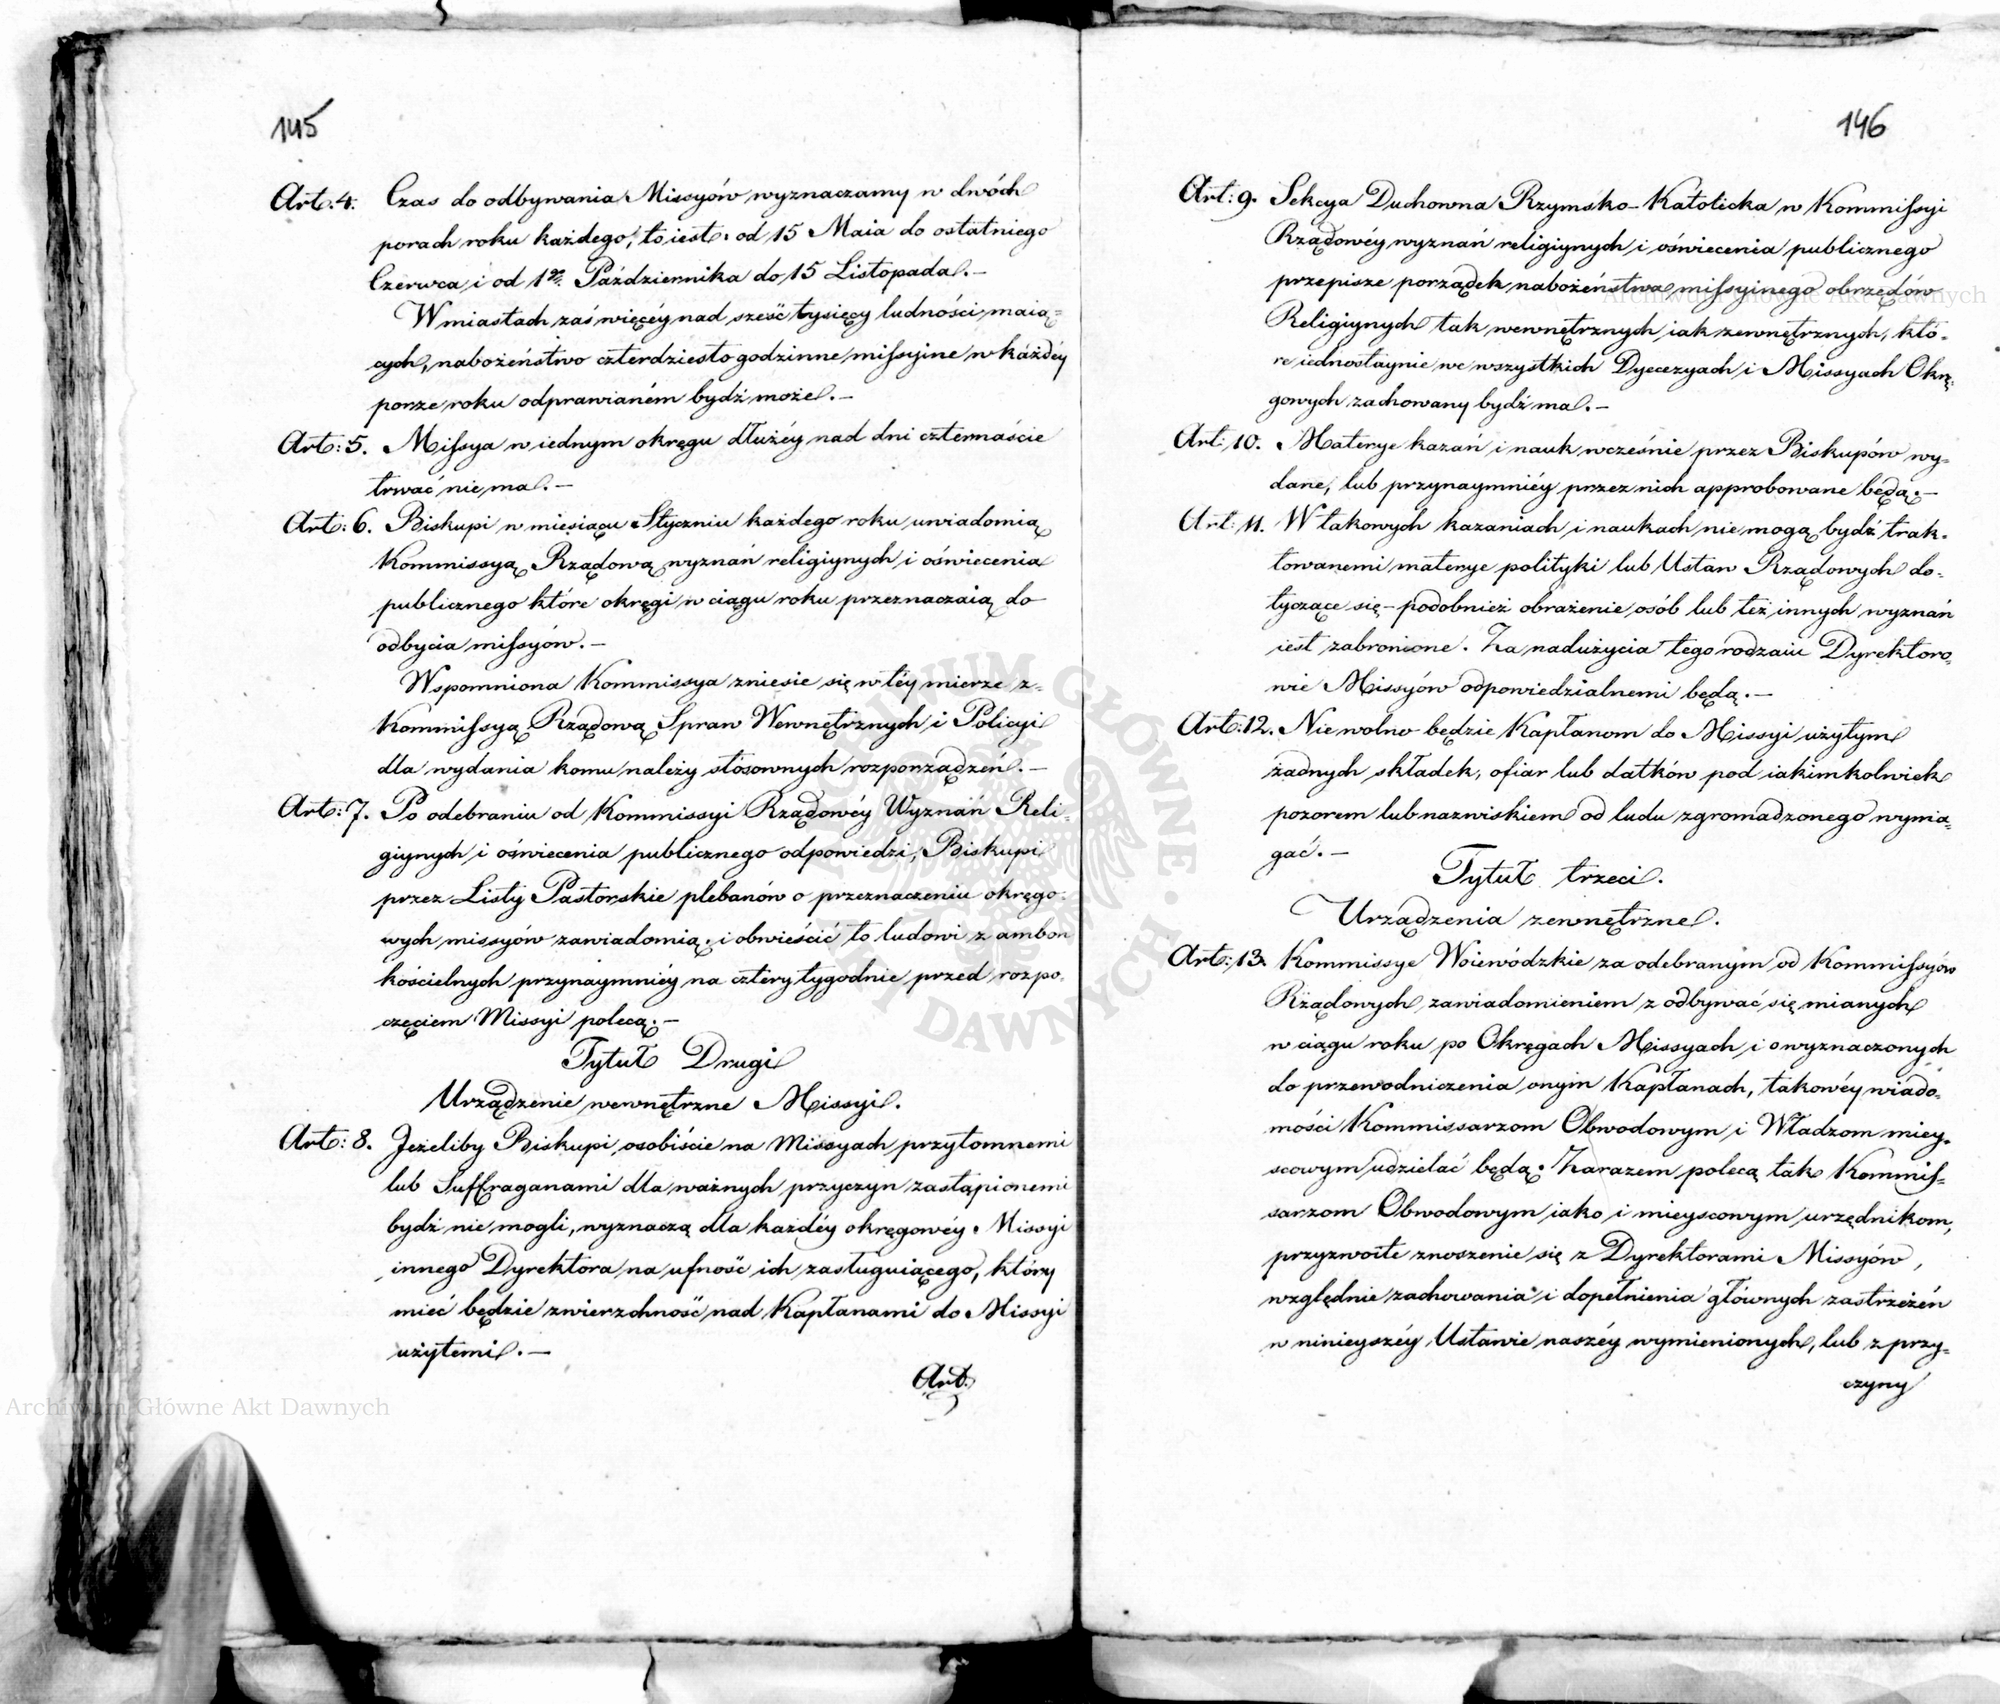 145
Art. 4. Czas do odbywania Missyów wyznaczamy w dwóch
porach roku każdego, to iest: od 15 Maia do ostatniego
Czerwca, i od 1go Października do 15 Listopada.—
W miastach zaś więcéy nad sześć tysięcy ludności maią=
cych, nabożeństwo czterdziesto godzinne missyine w każdéy
porze roku odprawianém bydź może.—
Art: 5. Missya w iednym okręgu dłużéy nad dni czternaście
trwać nie ma.—
Art: 6. Biskupi w miesiącu Styczniu każdego roku, uwiadomią
Kommissyą Rządową wyznań religiynych i oświecenia
publicznego które okręgi w ciągu roku przeznaczaią do
odbycia missyów.—
Wspomniona Kommissya zniesie się w téy mierze z=
Kommissyą Rządową Spraw Wewnętrznych i Policyi
dla wydania komu należy stósownych rozporządzeń.—
Art: 7. Po odebraniu od Kommissyi Rządowéy Wyznań Reli-
giynych i oświecenia publicznego odpowiedzi, Biskupi
przez Listy Pasterskie plebanów o przeznaczeniu okręgo-
wych missyów zawiadomią, i obwieścić to ludowi z ambon
kościelnych przynaymniéy na cztery tygodnie przed rozpo-
częciem Missyi polecą.—
Tytuł Drugi
Urządzenie wewnętrzne Missyi.
Art: 8. Jeżeliby Biskupi, osobiście na Missyach przytomnemi
lub Suffraganami dla ważnych przyczyn zastąpionemi
bydź nie mogli, wyznaczą dla każdéy okręgowéy Missyi
innego Dyrektora na ufność ich zasługuiącego, który
mieć będzie zwierzchność nad Kapłanami do Missyi
użytemi.—
Art.
146
Art: 9. Sekcya Duchowna Rzymsko-Katolicka w Kommissyi
Rządowéy wyznań religiynych i oświecenia publicznego
przepisze porządek nabożeństwa missyinego obrzędów
Religiynych tak wewnętrznych iak zewnętrznych, któ-
re iednostaynie we wszystkich Dyecezyach i Missyach Okrę-
gowych zachowany bydź ma.—
Art: 10. Materye kazań i nauk wcześnie przez Biskupów wy-
dane, lub przynaymniéy przez nich approbowane będą.—
Art: 11. W takowych kazaniach i naukach nie mogą bydź trak-
towanemi materye polityki lub Ustaw Rządowych do-
tyczące się - podobnież obrażenie osób lub też innych wyznań
iest zabronione. Za nadużycia tego rodzaiu Dyrektoro-
wie Missyów odpowiedzialnemi będą.—
Art: 12. Nie wolno będzie Kapłanom do Missyi użytym
żadnych składek, ofiar lub datków pod iakimkolwiek
pozorem lub nazwiskiem od ludu zgromadzonego wyma-
gać.—
Tytuł trzeci.
Urządzenia zewnętrzne.
Art: 13. Kommissye Woiewódzkie za odebranym od Kommissyów
Rządowych zawiadomieniem z odbywać się mianych
w ciągu roku po Okręgach Missyach i o wyznaczonych
do przewodniczenia onym Kapłanach, takowéy wiado-
mości Kommissarzom Obwodowym i Władzom miey-
scowym udzielać będą. Zarazem polecą tak Kommis-
sarzom Obwodowym iako i mieyscowym urzędnikom,
przyzwoite znoszenie się z Dyrektorami Missyów,
względnie zachowania i dopełnienia głównych zastrzeżeń
w ninieyszéy Ustawie naszéy wymienionych, lub z przy-
czyny
Archiwum Główne Akt Dawnych
Archiwum Główne Akt Dawnych
ARCHIWUM GŁÓWNE AKT DAWNYCH